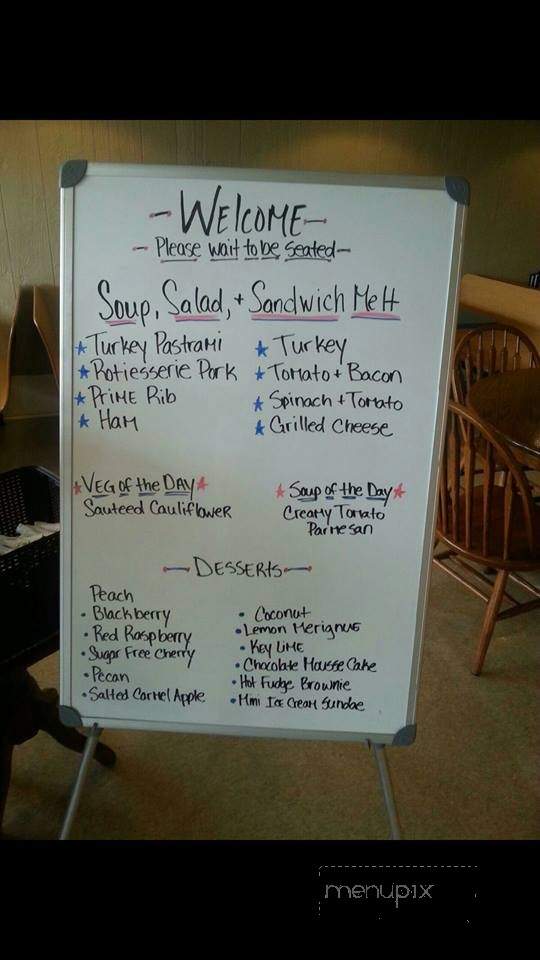 - Welcome -
- Please wait to be seated -
Soup, Salad, + Sandwich Melt
★ Turkey Pastrami
★ Rotiesserie Pork
★ Prime Rib
★ Ham
★ Turkey
★ Tomato + Bacon
★ Spinach + Tomato
★ Grilled Cheese
★ Veg of the Day ★
Sauteed Cauliflower
★ Soup of the Day ★
Creamy Tomato
Parmesan
- Desserts -
Peach
• Blackberry
• Red Raspberry
• Sugar Free Cherry
• Pecan
• Salted Carmel Apple
• Coconut
• Lemon Merignue
• Key Lime
• Chocolate Mousse Cake
• Hot Fudge Brownie
• Mini Ice Cream Sundae
menupix